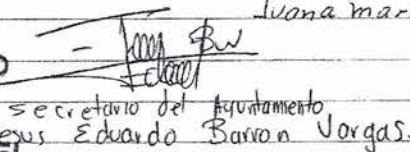 Juana mar
Secretario del Ayuntamiento
esus Eduardo Barron Vargas.